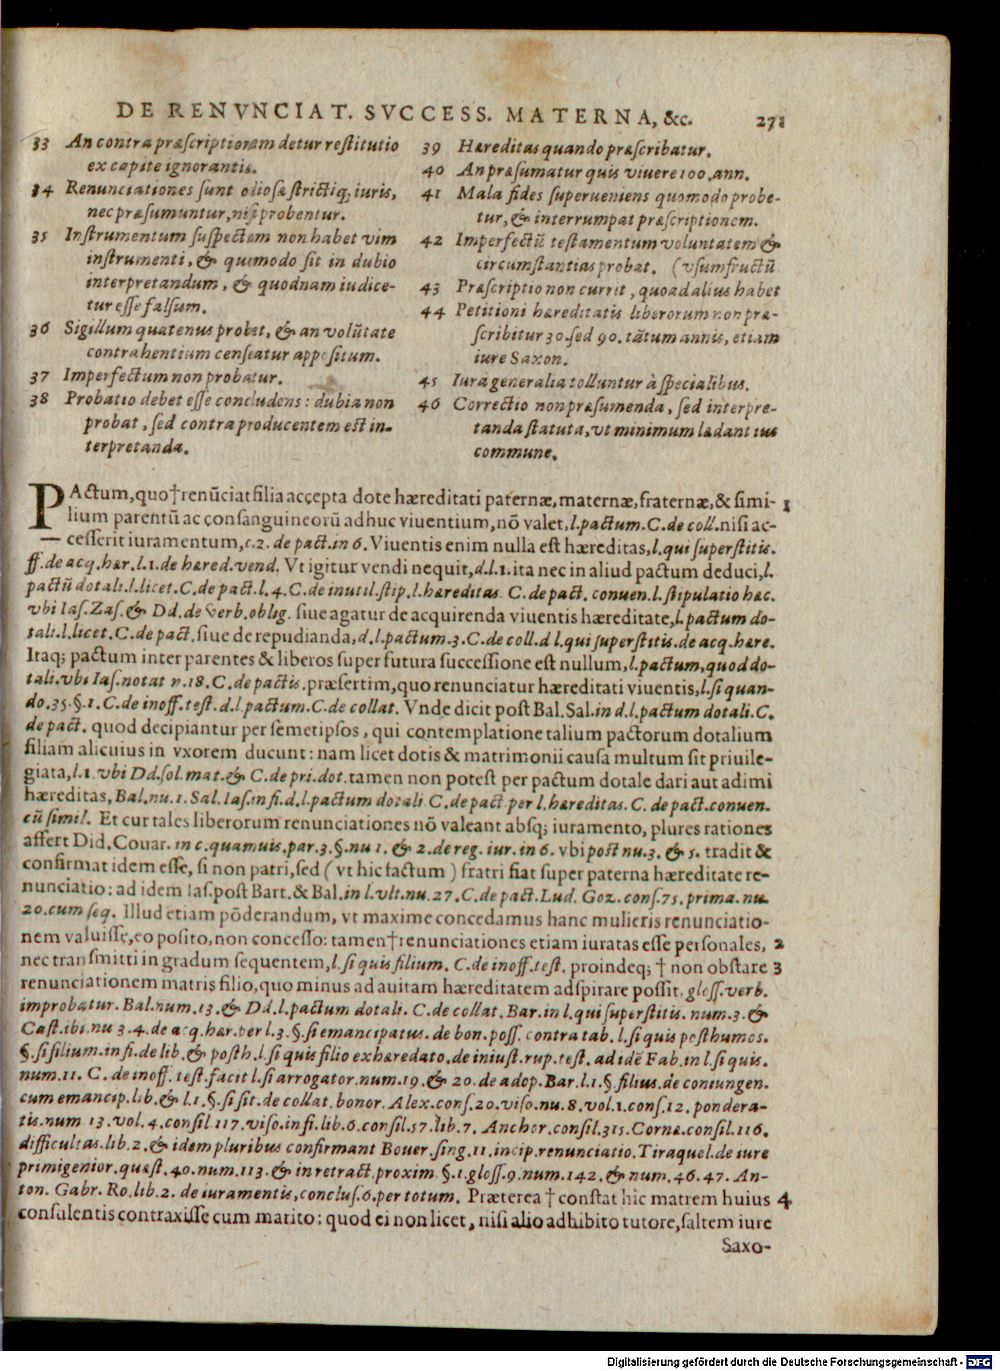 DE RENVNCIAT. SVCCESS. MATERNA, &c. 271
33 An contra præscriptionem detur restitutio
ex capite ignorantiæ.
34 Renunciationes sunt odiosæ strictiq; iuris,
nec præsumuntur, nisi probentur.
35 Instrumentum suspectum non habet vim
instrumenti, & quomodo sit in dubio
interpretandum, & quodnam iudice-
tur esse falsum.
36 Sigillum quatenus probet, & an volūtate
contrahentium censeatur appositum.
37 Imperfectum non probatur.
38 Probatio debet esse concludens: dubia non
probat, sed contra producentem est in-
terpretanda.
39 Hæreditas quando præscribatur.
40 An præsumatur quis viuere 100. ann.
41 Mala fides superueniens quomodo probe-
tur, & interrumpat præscriptionem.
42 Imperfectū testamentum voluntatem &
circumstantias probat. (vsumfructū
43 Præscriptio non currit, quoad alius habet
44 Petitioni hæreditatis liberorum non præ-
scribitur 30. sed 90. tātum annis, etiam
iure Saxon.
45 Iura generalia tolluntur à specialibus.
46 Correctio non præsumenda, sed interpre-
tanda statuta, vt minimum lædant ius
commune.
PActum, quo † renūciat filia accepta dote hæreditati paternæ, maternæ, fraternæ, & simi- 1
lium parentū ac consanguineorū adhuc viuentium, nō valet, l. pactum. C. de coll. nisi ac-
cesserit iuramentum, c. 2. de pact. in 6. Viuentis enim nulla est hæreditas, l. qui superstitis.
ff. de acq. hær. l. 1. de hæred. vend. Vt igitur vendi nequit, d. l. 1. ita nec in aliud pactum deduci, l.
pactū dotali. l. licet. C. de pact. l. 4. C. de inutil. stip. l. hæreditas. C. de pact. conuen. l. stipulatio hæc.
vbi Ias. Zas. & Dd. de verb. oblig. siue agatur de acquirenda viuentis hæreditate, l. pactum do-
tali. l. licet. C. de pact. siue de repudianda, d. l. pactum. 3. C. de coll. d l. qui superstitis. de acq. hære.
Itaq; pactum inter parentes & liberos super futura successione est nullum, l. pactum, quod do-
tali. vbi Ias. notat n. 18. C. de pactis. præsertim, quo renunciatur hæreditati viuentis, l. si quan-
do. 35. §. 1. C. de inoff. test. d. l. pactum. C. de collat. Vnde dicit post Bal. Sal. in d. l. pactum dotali. C.
de pact. quod decipiantur per semetipsos, qui contemplatione talium pactorum dotalium
filiam alicuius in vxorem ducunt: nam licet dotis & matrimonii causa multum sit priuile-
giata, l. 1. vbi Dd. sol. mat. & C. de pri. dot. tamen non potest per pactum dotale dari aut adimi
hæreditas, Bal. nu. 1. Sal. Ias. in fi. d. l. pactum dotali C. de pact. per l. hæreditas. C. de pact. conuen.
cū simil. Et cur tales liberorum renunciationes nō valeant absq; iuramento, plures rationes
affert Did. Couar. in c. quamuis. par. 3. §. nu 1. & 2. de reg. iur. in 6. vbi post nu. 3. & 5. tradit &
confirmat idem esse, si non patri, sed (vt hic factum) fratri fiat super paterna hæreditate re-
nunciatio: ad idem Ias. post Bart. & Bal. in l. vlt. nu. 27. C. de pact. Lud. Goz. cons. 75. prima. nu.
20. cum seq. Illud etiam pōderandum, vt maxime concedamus hanc mulieris renunciatio-
nem valuisse, eo posito, non concesso: tamen † renunciationes etiam iuratas esse personales, 2
nec transmitti in gradum sequentem, l. si quis filium. C. de inoff. test. proindeq; † non obstare 3
renunciationem matris filio, quo minus ad auitam hæreditatem adspirare possit, gloss. verb.
improbatur. Bal. num. 13. & Dd. l. pactum dotali. C. de collat. Bar. in l. qui superstitis. num. 3. &
Cast. ibi. nu 3. 4. de acq. hær. per l. 3. §. si emancipatus. de bon. poss. contra tab. l. si quis posthumos.
§. si filium. in fi. de lib. & posth. l. si quis filio exhæredato. de iniust. rup. test. ad idē Fab. in l. si quis.
num. 11. C. de inoff. test. facit l. si arrogator. num. 19. & 20. de adop. Bar. l. 1. §. filius. de coniungen.
cum emancip. lib. & l. 1. §. si sit. de collat. bonor. Alex. cons. 20. viso. nu. 8. vol. 1. cons. 12. pondera-
tis. num 13. vol. 4. consil. 117. viso. in fi. lib. 6. consil. 57. lib. 7. Anchor. consil. 315. Corne. consil. 116.
difficultas. lib. 2. & idem pluribus confirmant Bouer. sing. 11. incip. renunciatio. Tiraquel. de iure
primigenior. quæst. 40. num. 113. & in retract. proxim. §. 1. gloss. 9. num. 142. & num. 46. 47. An-
ton. Gabr. Ro. lib. 2. de iuramentis, conclus. 6. per totum. Præterea † constat hic matrem huius 4
consulentis contraxisse cum marito: quod ei non licet, nisi alio adhibito tutore, saltem iure
Saxo-
Digitalisierung gefördert durch die Deutsche Forschungsgemeinschaft - DFG